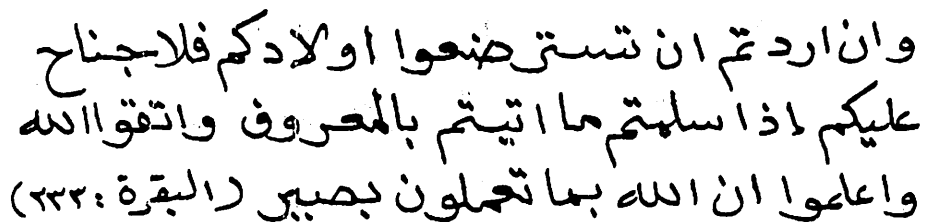 وان اردتم ان تسترضعوا اولادكم فلا جناح
عليكم إذا سلمتم ما اتيتم بالمعروف واتقوا الله
واعلموا ان الله بما تعملون بصير (البقرة : ٢٣٣)